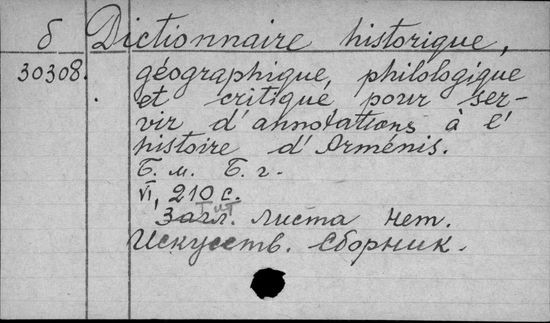 б Dictionnaire historique,
30308. géographique, philologique
et critique pour ser-
vir d'annotations à l'
histoire d'Arménis.
Б. м. Б. г.
VI, 210 с.
Загл. Тит. листа нет.
Искусств. сборник.